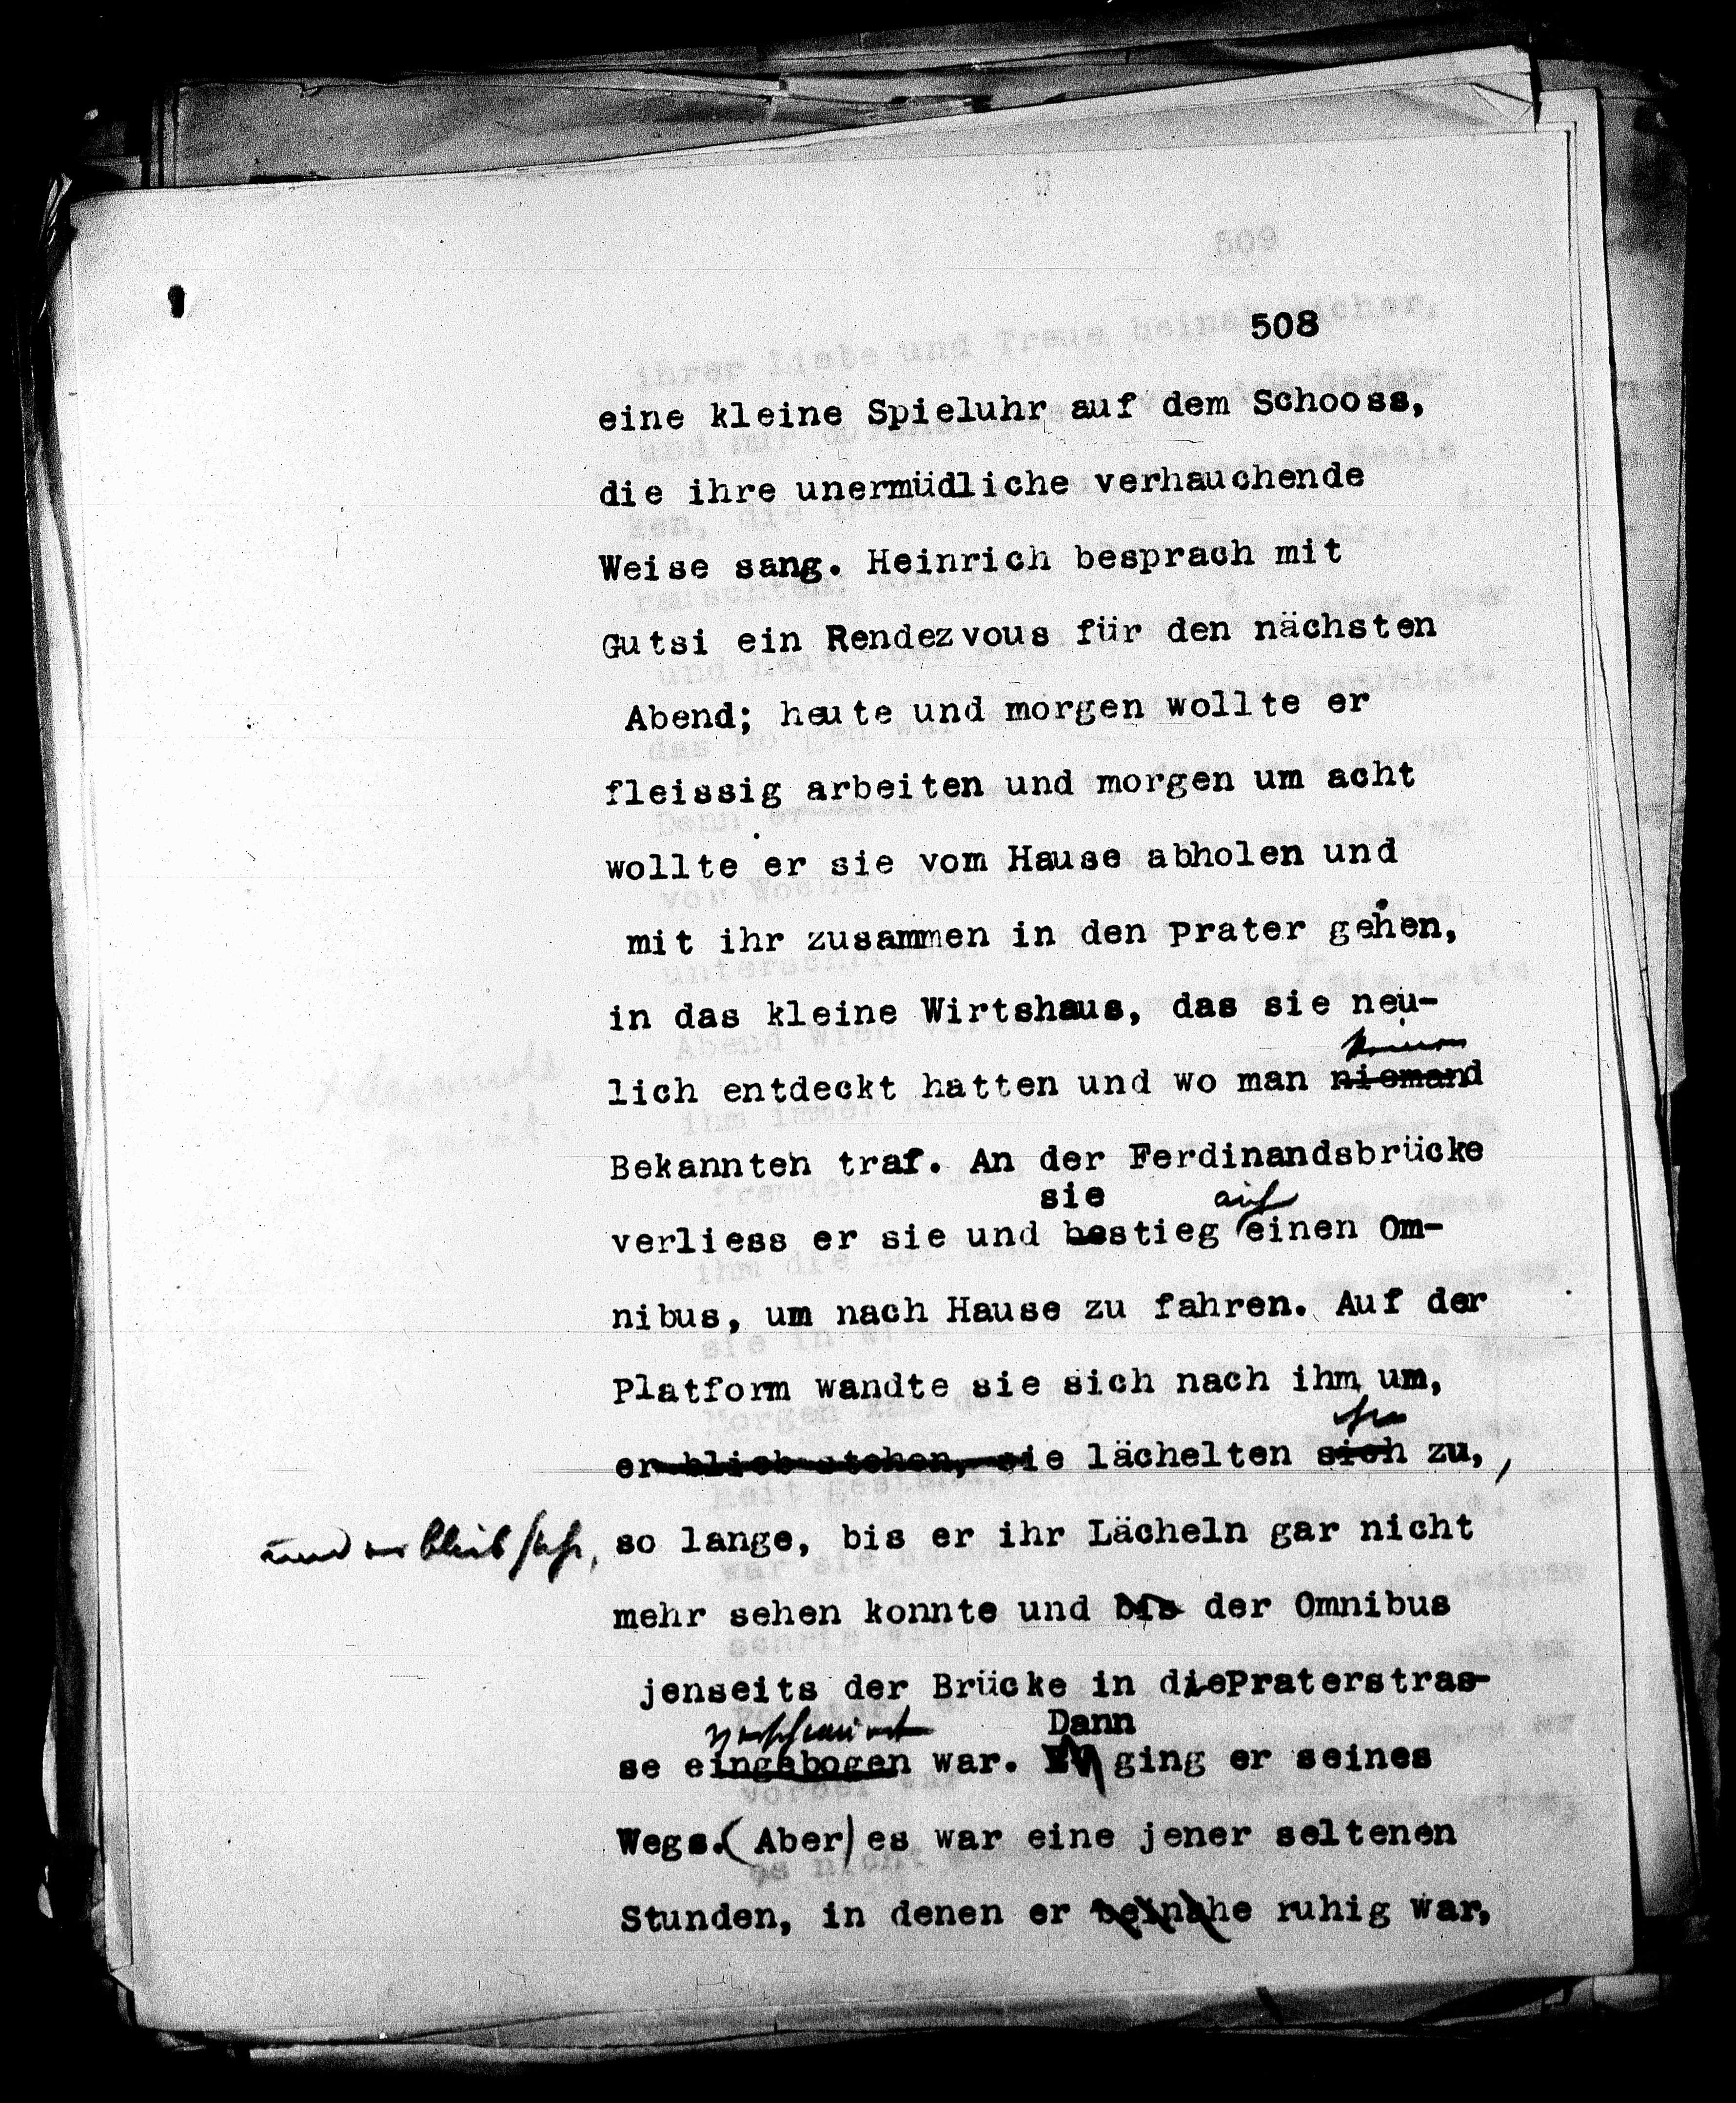 508
eine kleine Spieluhr auf dem Schooss,
die ihre unermüdliche verhauchende
Weise sang. Heinrich besprach mit
Gutsi ein Rendezvous für den nächsten
Abend; heute und morgen wollte er
fleissig arbeiten und morgen um acht
wollte er sie vom Hause abholen und
mit ihr zusammen in den Prater gehen,
in das kleine Wirtshaus, das sie neu-
lich entdeckt hatten und wo man niemand
Bekannten traf. An der Ferdinandsbrücke
sie auf
verliess er sie und bestieg einen Om-
nibus, um nach Hause zu fahren. Auf der
Platform wandte sie sich nach ihm um,
er blieb stehen, sie lächelten sich zu,
und er blieb stehn, so lange, bis er ihr Lächeln gar nicht
mehr sehen konnte und bis der Omnibus
jenseits der Brücke in diePraterstras-
verschwunden Dann
se eingebogen war. Er ging er seines
Wegs. (Aber) es war eine jener seltenen
Stunden, in denen er beinahe ruhig war,